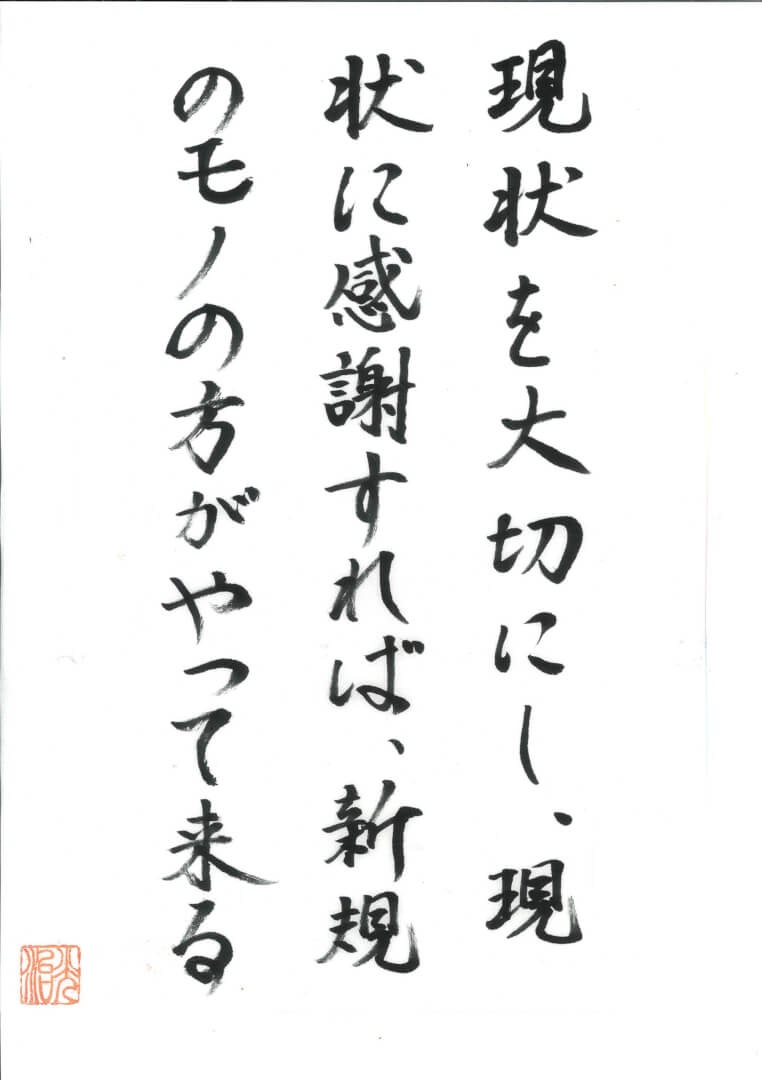 現状を大切にし、現
状に感謝すれば、新規
のモノの方がやって来る